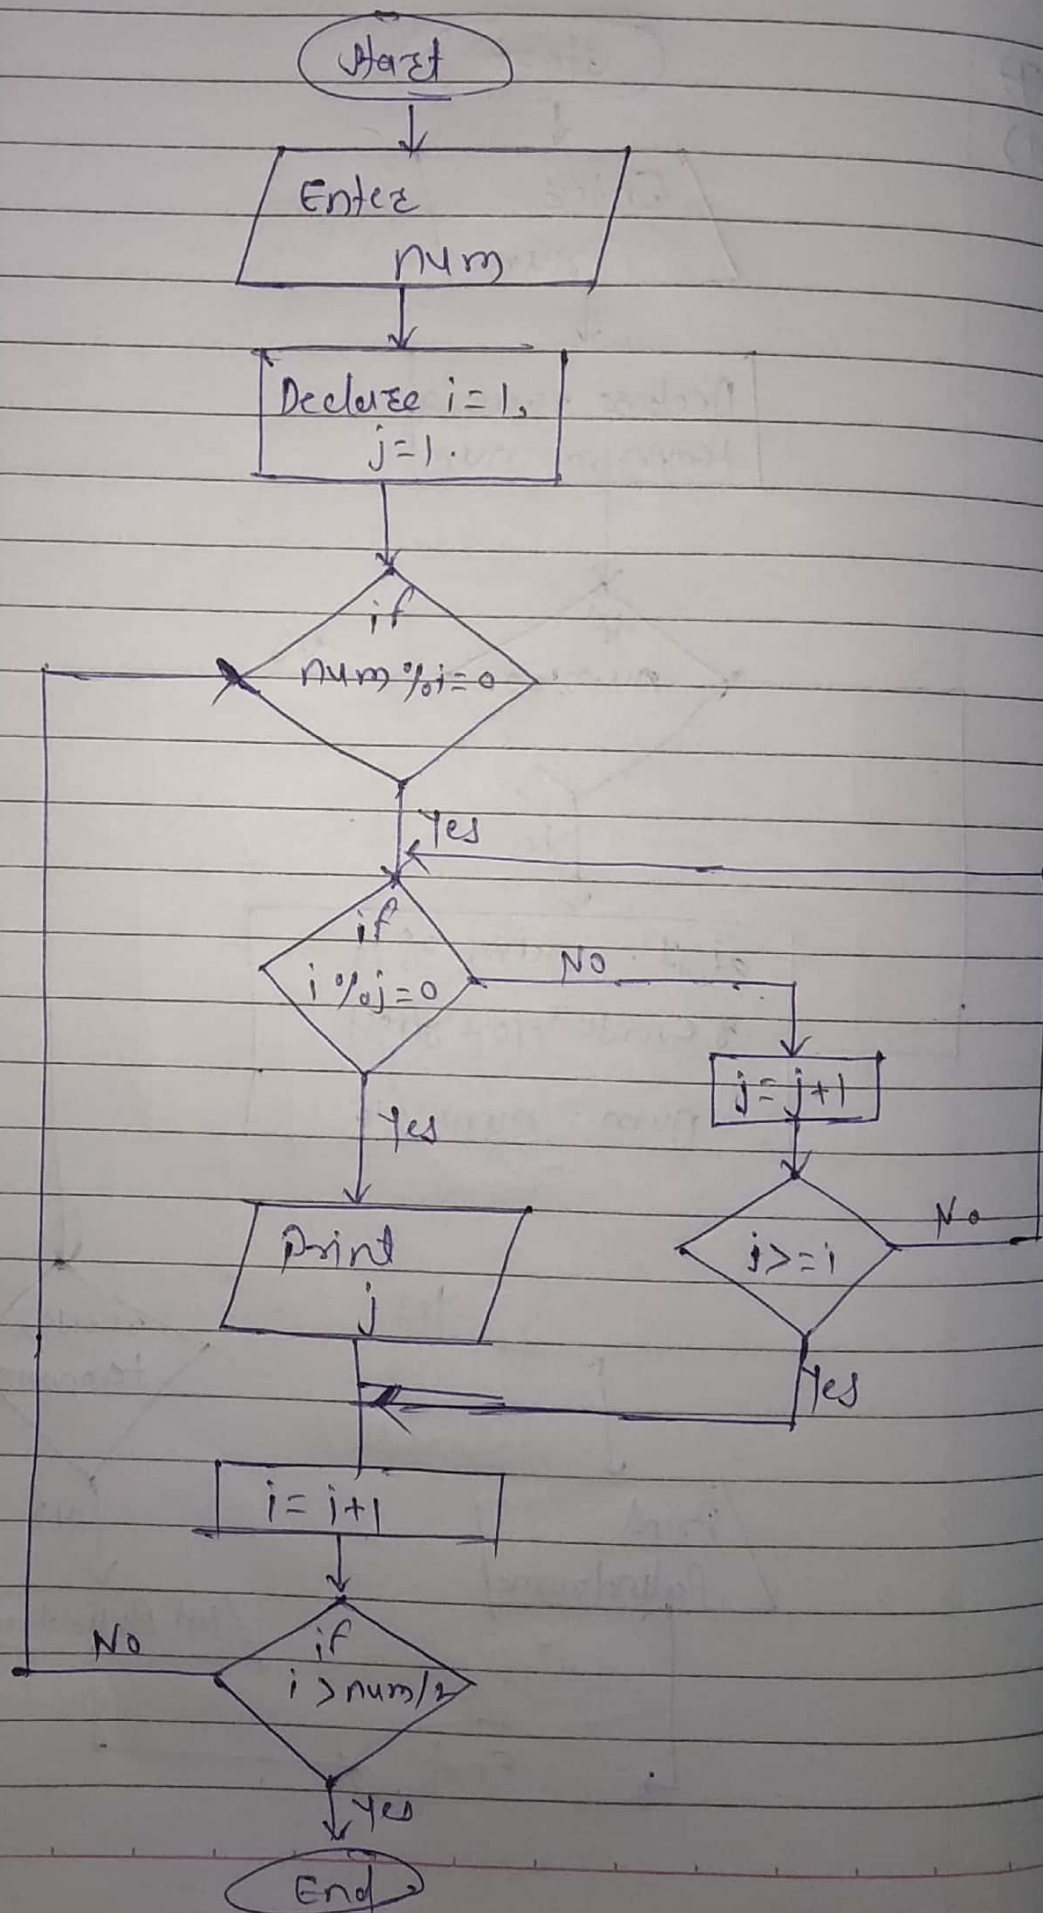 Start
Enter
num
Declare i=1,
j=1.
if
num%i=0
Yes
if
i%j=0
NO
j=j+1
Yes
j>=i
No
Print
j
Yes
i=i+1
if
i>num/2
No
Yes
End